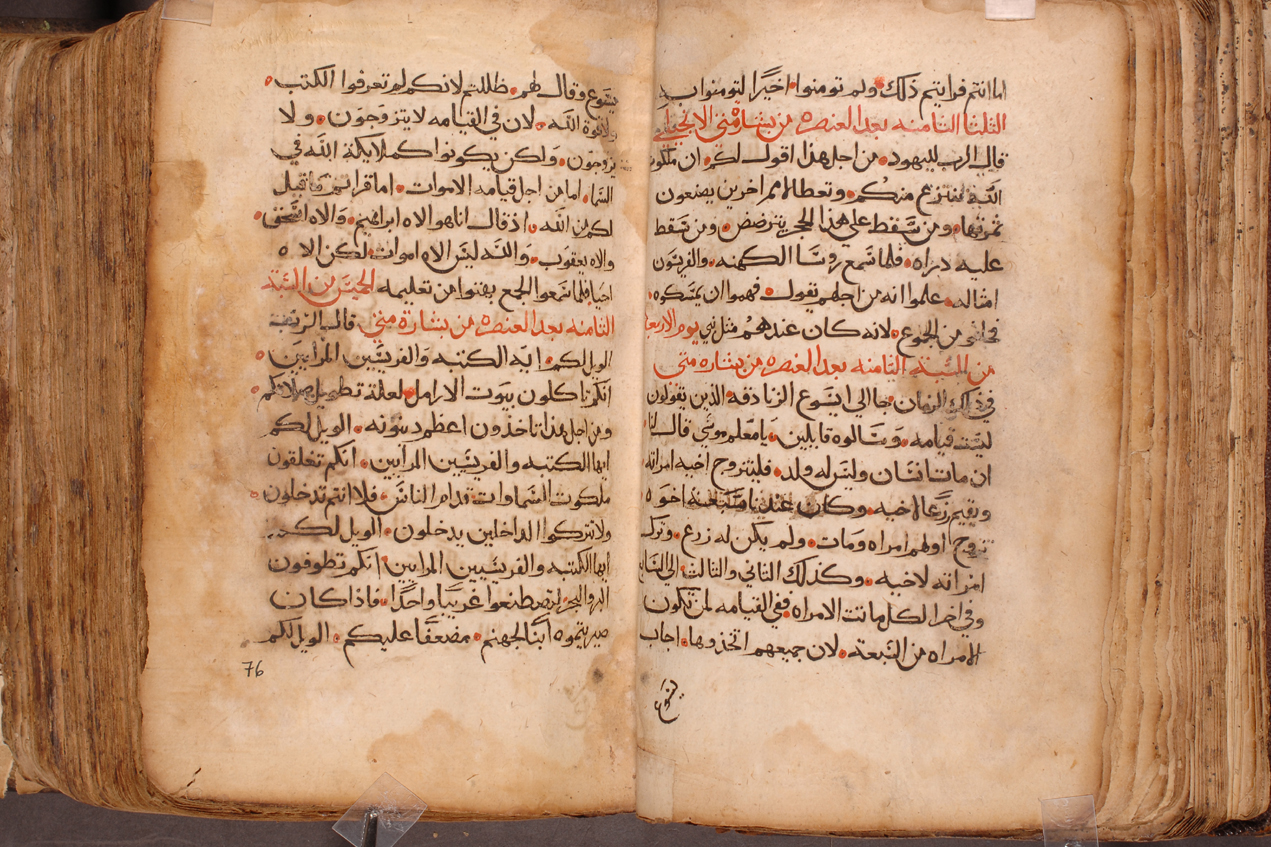 اما انتم فرايتم ذلك ولم تومنوا اخيرًا لتومنوا به
الثلثا الثامنه بعد العنصره من بشارة متي الانجيلي
قال الرب لليهود من اجل هذا اقول لكم ان ملكوت
الله تنتزع منكم وتعطا لامم اخرين يصنعون
ثمرتها ومن سقط علي هذا الحجر يترضض ومن سقط
عليه دراه فلما سمع روسا الكهنه والفريسون
امثاله علموا انه من اجلهم يقول فهموا ان يمسكوه
فخافو من الجموع لانه كان عندهم مثل نبي يوم الاربعا
من السبة الثامنه بعد العنصره من بشاره متي
في ذلك الزمان جا الي ايسوع الزنادقه الذين يقولون
ليست قيامه وسالوه قايلين يا معلم موسي قال لنا
ان مات انسان وليس له ولد فليتزوج اخيه امراته
ويقيم زرعًا لاخيه وكان عندنا سبعة اخوه
تزوج اولهم امراه ومات ولم يكن له زرع وترك
امراته لاخيه وكذلك الثاني والثالث الي السابع
وفي اخر الكل ماتت الامراه ففي القيامه لمن تكون
الامراه من السبعة لان جميعهم اتخذوها اجاب
يسوع
يسوع وقال لهم ظللتم لانكم لم تعرفوا الكتب
ولا قوة الله لان في القيامه لا يتزوجون ولا
يزوجون ولكن يكونوا كملايكة الله في
السما اما من اجل قيامه الاموات اما قراتم ما قيل
لكم من الله اذ قال انا هو الاه ابراهيم والاه اسحق
والاه يعقوب والله ليس الاه اموات لكن الاه
احيا فلما سمعوا الجمع بهتوا من تعليمه الخميس من السبة
الثامنه بعد العنصره من بشارة متي قال الرب
الويل لكم ايه الكتبه والفريسين المرايين
انكم تاكلون بيوت الارامل لعلة تطويل صلاتكم
ومن اجل هذا تاخذون اعظم دينونه الويل لكم
ايها الكتبه والفريسين المرايين انكم تغلقون
ملكوت السماوات قدام الناس فلا انتم تدخلون
ولا تتركوا الداخلين يدخلون الويل لكم
ايها الكتبه والفريسيين المرايين انكم تطوفون
البر والبحر لتصطنعوا غريبًا واحدًا فاذا كان
صيرتموه ابنا لجهنم مضعفًا عليكم الويل لكم
76